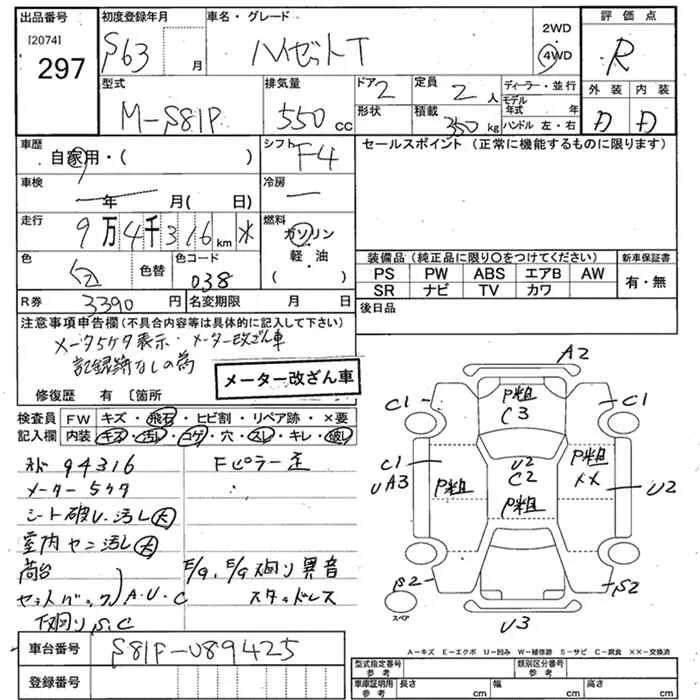 出品番号
[2074]
297
初度登録年月
S63 月
車名・グレード
ハイゼットT
2WD
4WD
評価点
R
型式
M-S81P
排気量
550 cc
ドア 2
形状
定員 2 人
積載 350 kg
ディーラー・並行
モデル年式 年
ハンドル 左・右
外装 内装
D D
車歴
自家用・( )
シフト F4
セールスポイント (正常に機能するものに限ります)
車検
年 月( 日)
冷房
走行
9万4千316 km
燃料
ガソリン
軽・油
( )
色
白
色替
色コード
038
装備品 (純正品に限り○をつけてください)
新車保証書
PS PW ABS エアB AW
SR ナビ TV カワ
有・無
R券 3390 円 名変期限 月 日
後日品
注意事項申告欄 (不具合内容等は具体的に記入して下さい)
メータ5ケタ表示・メーター改ざん車
記録簿なしの為
メーター改ざん車
修復歴 有 〔箇所
検査員記入欄
FW キズ・飛石・ヒビ割・リペア跡・×要
内装 キズ・汚れ・コゲ・穴・スレ・キレ・破レ
94316
Fピラー歪
メーター5ケタ
シート破レ・汚レ大
室内ヤニ汚レ大
荷台
セットバック A・U・C
下廻りS.C
E/G、E/G廻り異音
スタッドレス
A2
C1
P粗
C3
C1
C1
UA3
P粗
U2
C2
P粗
P粗
××
U2
S2
S2
U3
スペア
A―キズ E―エクボ U―凹み W―補修跡 S―サビ C―腐食 ××―交換済
車台番号
S81P-089425
登録番号
型式指定番号
参考
類別区分番号
参考
車庫証明用
参考
長さ cm
幅 cm
高さ cm